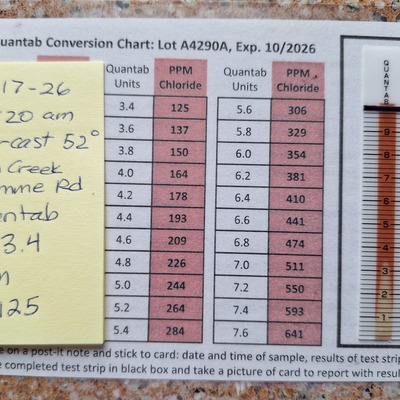 uantab Conversion Chart: Lot A4290A, Exp. 10/2026
17-26
20 am
cast 52°
Creek
Rd
ntab
3.4
125
Quantab Units PPM Chloride Quantab Units PPM Chloride
3.4 125 5.6 306
3.6 137 5.8 329
3.8 150 6.0 354
4.0 164 6.2 381
4.2 178 6.4 410
4.4 193 6.6 441
4.6 209 6.8 474
4.8 226 7.0 511
5.0 244 7.2 550
5.2 264 7.4 593
5.4 284 7.6 641
QUANTAB
9
8
7
6
5
4
3
2
1
e on a post-it note and stick to card: date and time of sample, results of test strip
e completed test strip in black box and take a picture of card to report with resul